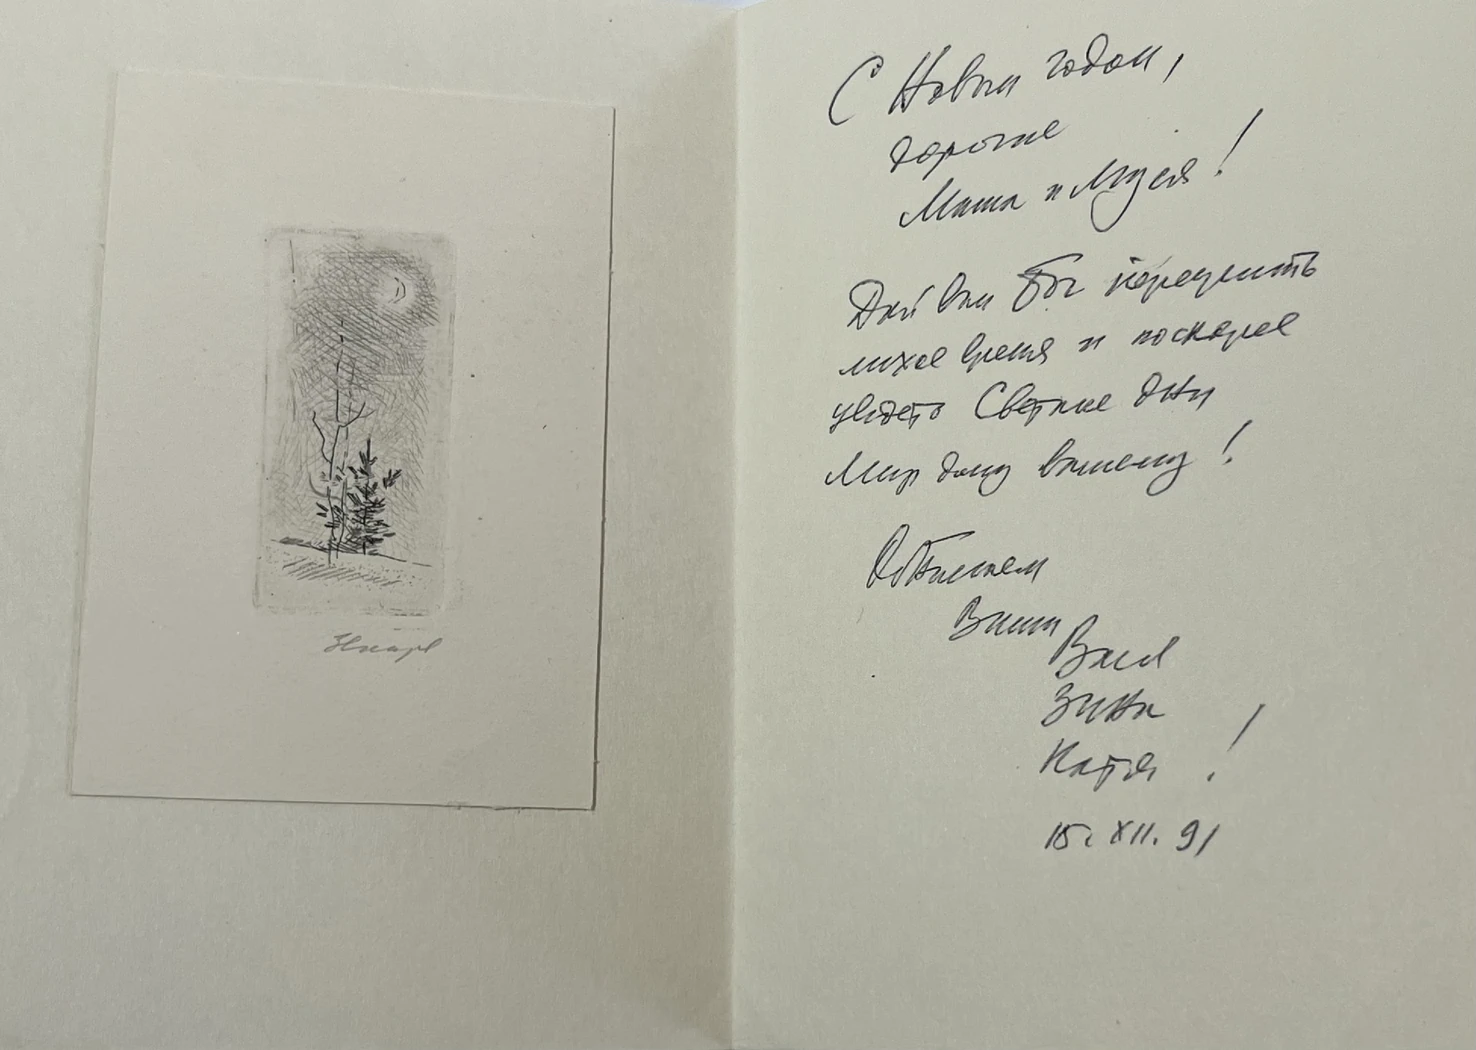 С Новым годом,
дорогие
Маша и Муся!
Дай вам Бог
лихое время и поскорее
увидеть Светлые дни
Мир дому вашему!
Обнимаем
Ваши
Вася
Зина
Катя!
15. XII. 91